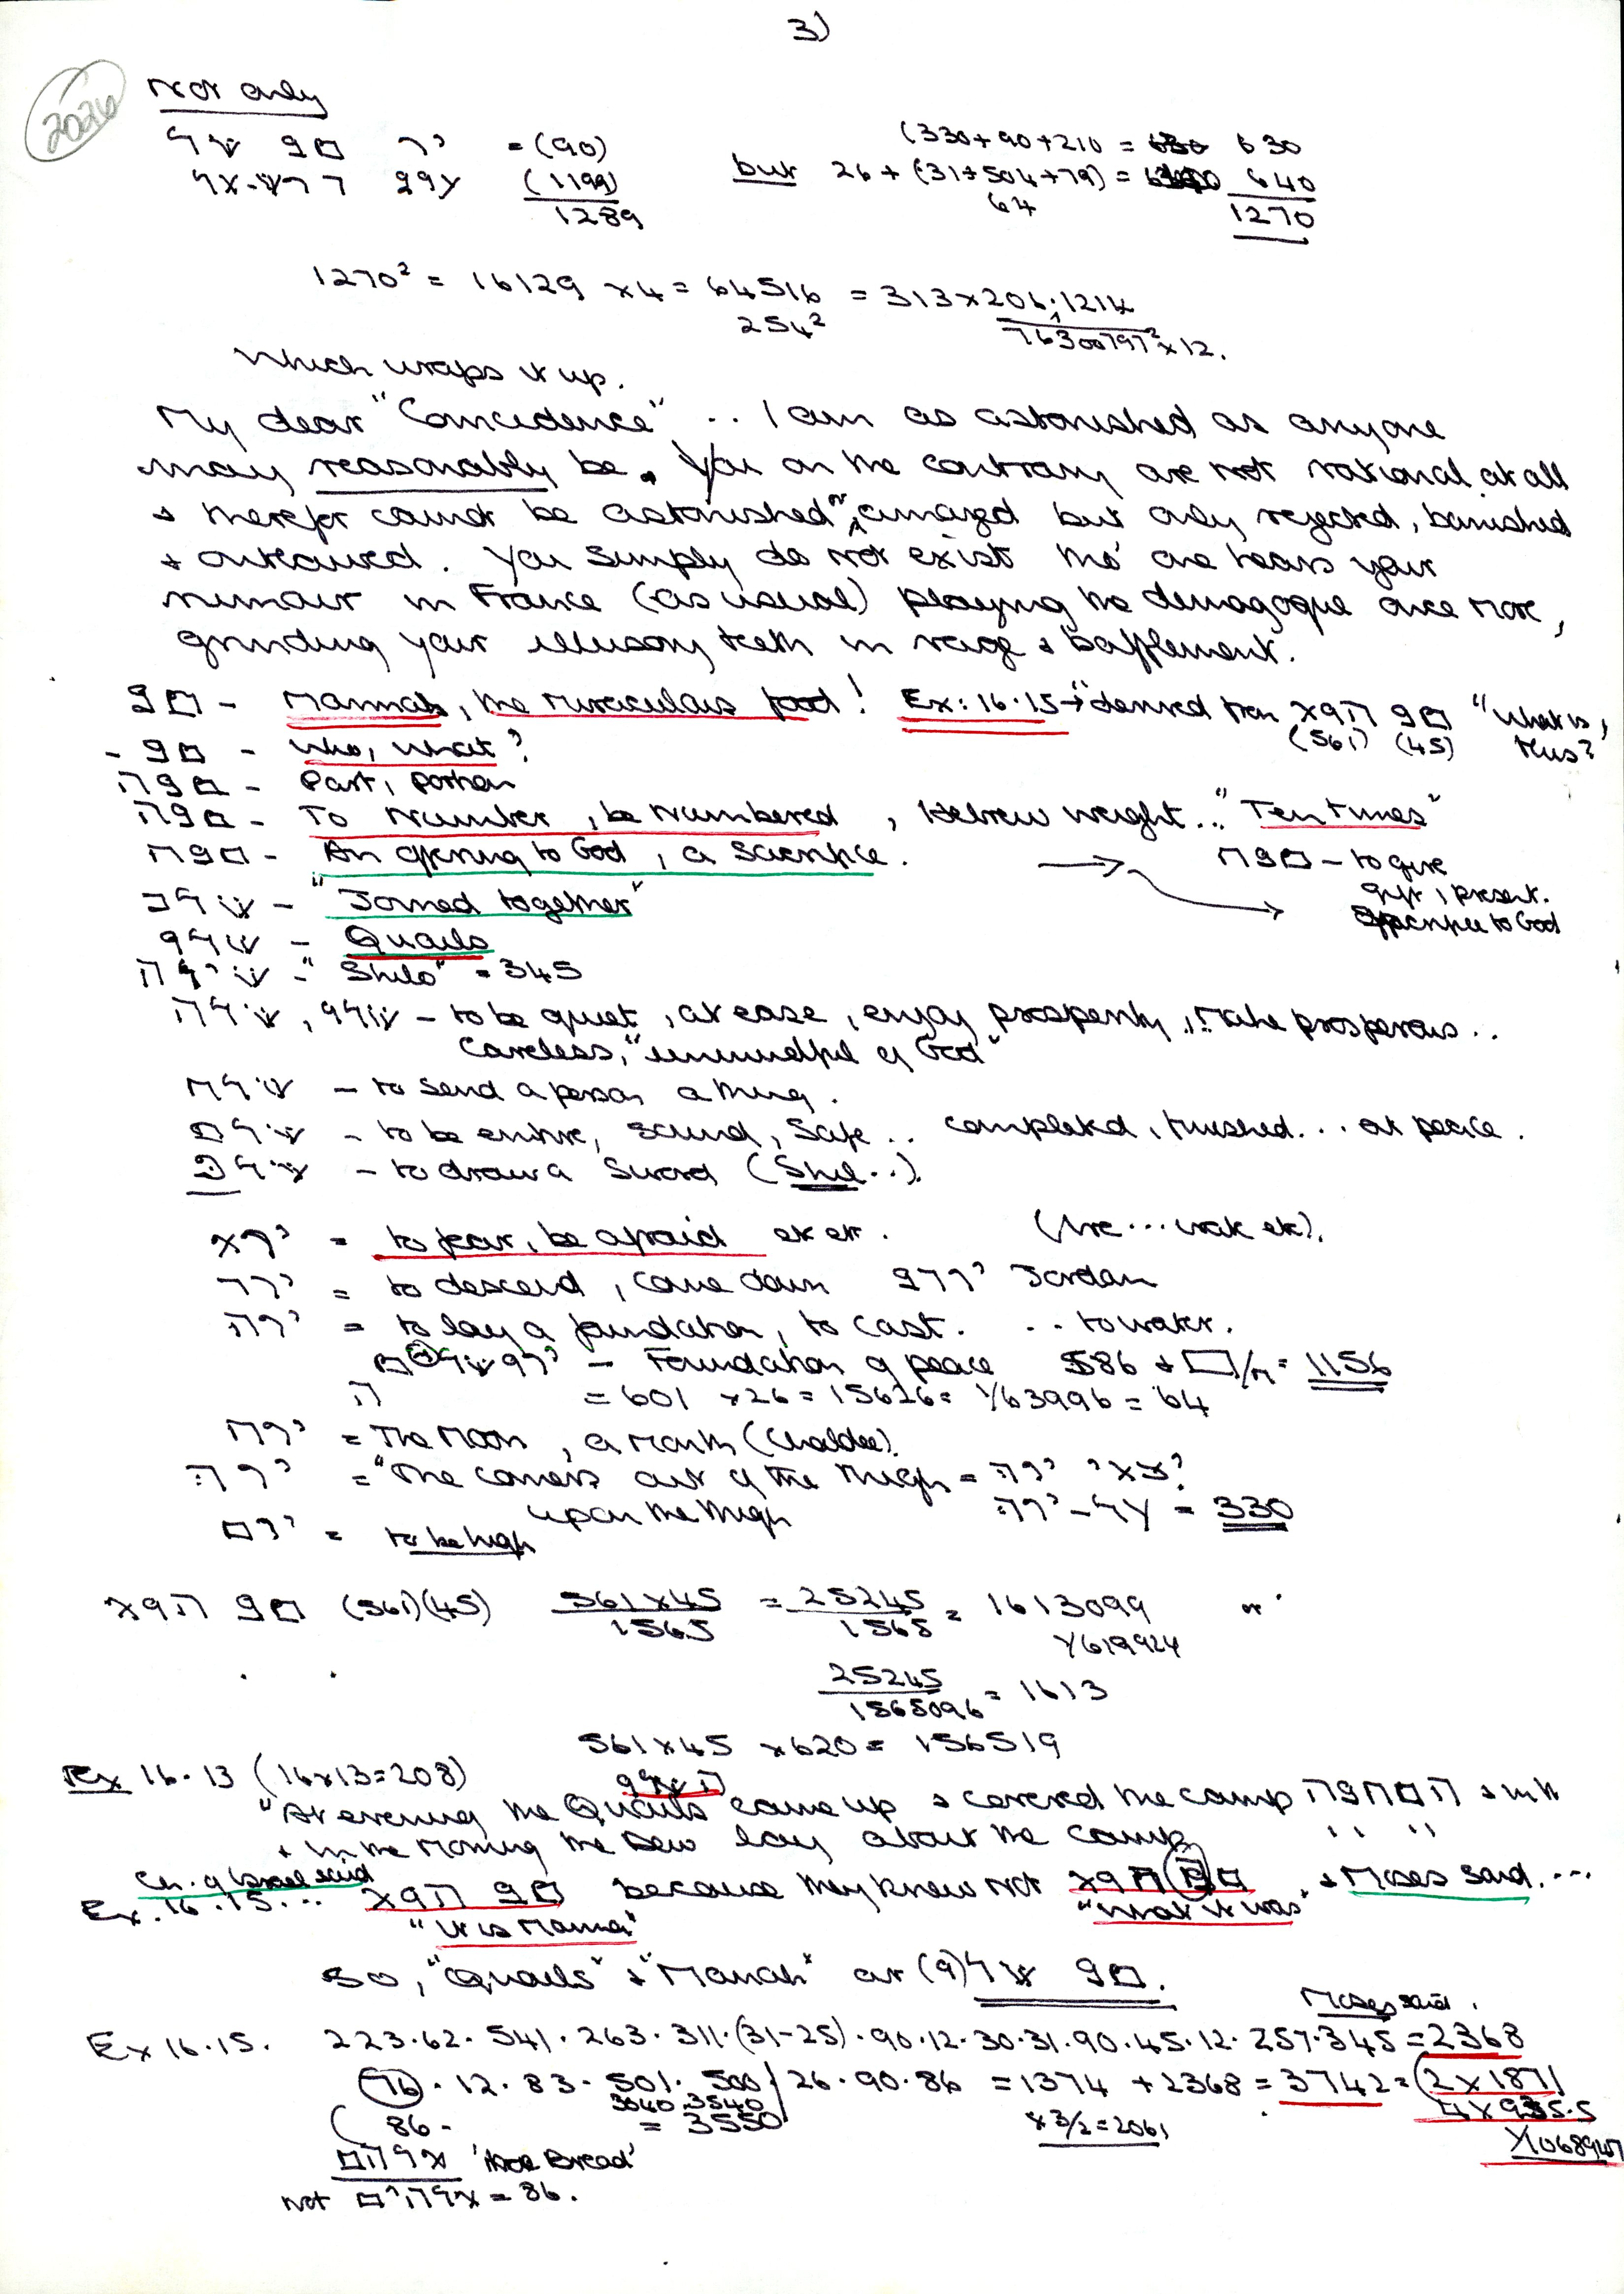 3)
2026
Not only
לש מן יר = (90)
(1199)
1289
(330+90+210 = 630
but 26 + (31+504+79) = 640
64
1270
1270² = 16129 ×4 = 64516 = 313×206.1214
254²
7630079²×12.
Which wraps it up.
My dear "Coincidence" .. I am as astonished as anyone
may reasonably be. You on the contrary are not rational at all
& therefor cannot be astonished or amazed but only rejected, banished
& outlawed. You simply do not exist tho' one hears your
rumour in France (as usual) playing the demagogue once more,
grinding your illusory teeth in rage & bafflement.
מן - Mannah, the miraculous food! Ex: 16.15 → "derived from מן הנא "what is,
(561) (45) this?
- מן - who, what?
מנה - Part, portion
מנה - To number, be numbered, Hebrew weight.. "Ten Times"
מנח - An offering to God, a sacrifice.
מנח - to give
gift, present.
to God
שלב - "Joined together"
שלו - Quails
שילה - "Shilo" = 345
שלה, שלו - to be quiet, at ease, enjoy prosperity, make prosperous..
Careless, "unmindful of God"
שלח - to send a person a thing.
שלם - to be entire, sound, safe .. completed, finished... at peace.
שלף - to draw a sword (Shel..).
ירא = to fear, be afraid etc etc. (Are... wrak etc).
ירד = to descend, come down ירדן Jordan
ירה = to lay a foundation, to cast. .. to water.
ירושלם - Foundation of peace 586 & ם/מ = 1156
ה = 601 ×26 = 15626 = Y63996 = 64
ירח = The Moon, a month (Chaldee).
ירך = "The comers out of the thigh =
upon the thigh על-ירך = 330
ירם = to be high
מן הנא (561)(45) 561×45 = 25245 = 1613099 or
1565 1565 Y619924
25245 = 1613
1565096
561×45 ×620 = 156519
Ex 16.13 (16×13=208)
השלו
"At evening the Quails came up & covered the camp המחנה
& in the morning the Dew lay about the camp " "
Ch. of Israel said
Ex. 16.15... מן הנא because they knew not מה הנא & Moses said....
"It is Manna" "What it was"
So, "Quails" & "Manah" at של(ו) מן.
Moses said.
Ex 16.15. 223.62.541.263.311.(31-25).90.12.30.31.90.45.12.257.345 = 2368
(76).12.83.501.500/26.90.86 = 1374 + 2368 = 3742 = (2×1871
3040 3540 4×935.5
( 86 - = 3550 ×3/2 = 2061
Y1068947
אלהם 'the Bread'
not אלהים = 86.